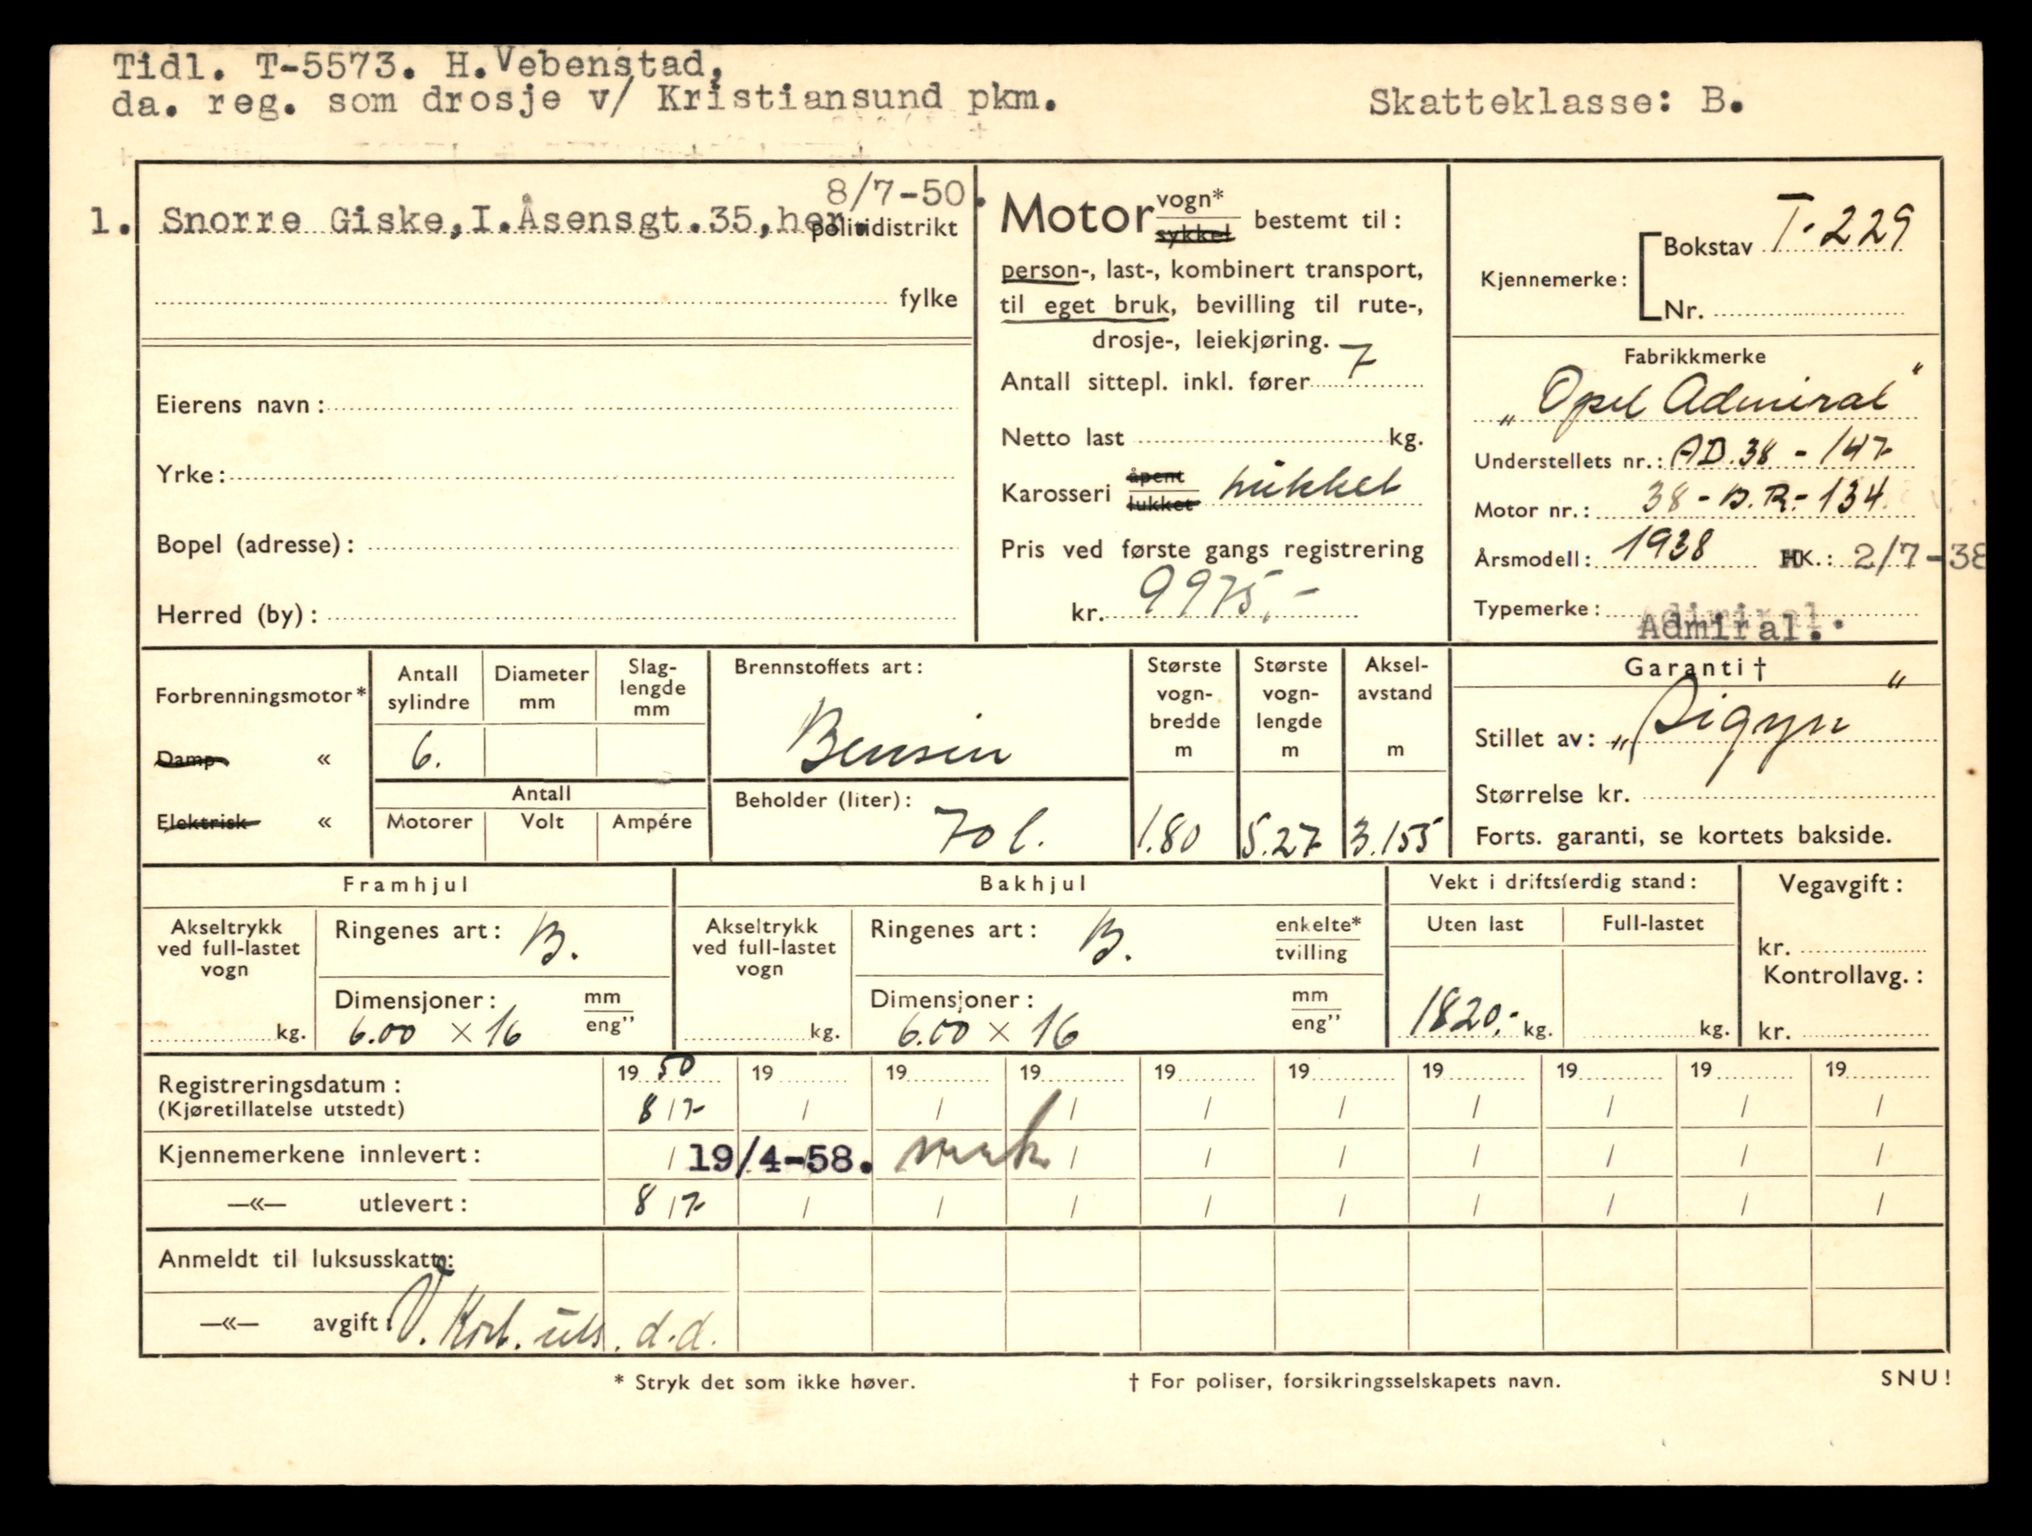 Tidl. T-5573. H.Vebenstad,
da. reg. som drosje v/ Kristiansund pkm.
Skatteklasse: B.
8/7-50.
1. Snorre Giske,I.Åsensgt.35,her.
politidistrikt
fylke
Eierens navn:
Yrke:
Bopel (adresse):
Herred (by):
Motor vogn* sykkel bestemt til:
person-, last-, kombinert transport,
til eget bruk, bevilling til rute-,
drosje-, leiekjøring.
Antall sittepl. inkl. fører 7
Netto last kg.
Karosseri åpent lukket lukket
Pris ved første gangs registrering
kr. 9975,-
Kjennemerke: Bokstav T-229
Nr.
Fabrikkmerke
„Opel Admiral"
Understellets nr.: AD.38 - 147
Motor nr.: 38-B.R.-134.
Årsmodell: 1938 HK.: 2/7-38
Typemerke: Admiral.
Forbrenningsmotor*
Damp «
Elektrisk «
Antall sylindre
Diameter mm
Slag-lengde mm
6.
Antall
Motorer Volt Ampére
Brennstoffets art:
Bensin
Beholder (liter):
70 l.
Største vogn-bredde m
1.80
Største vogn-lengde m
5.27
Aksel-avstand m
3.155
Garanti†
Stillet av: „Sigyn"
Størrelse kr.
Forts. garanti, se kortets bakside.
Framhjul
Akseltrykk ved full-lastet vogn
kg.
Ringenes art: B.
Dimensjoner: mm eng"
6.00 × 16
Bakhjul
Akseltrykk ved full-lastet vogn
kg.
Ringenes art: B. enkelte* tvilling
Dimensjoner: mm eng"
6.00 × 16
Vekt i driftsferdig stand:
Uten last Full-lastet
1820,- kg. kg.
Vegavgift:
kr.
Kontrollavg.:
kr.
Registreringsdatum: 1950 19 19 19 19 19 19 19 19 19
(Kjøretillatelse utstedt) 8/7 / / / / / / / / /
Kjennemerkene innlevert: / 19/4-58. / / / / / / /
—«— utlevert: 8/7 / / / / / / / / /
Anmeldt til luksusskatt:
—«— avgift: V. Kort. uts. d.d.
* Stryk det som ikke høver.
† For poliser, forsikringsselskapets navn.
SNU!